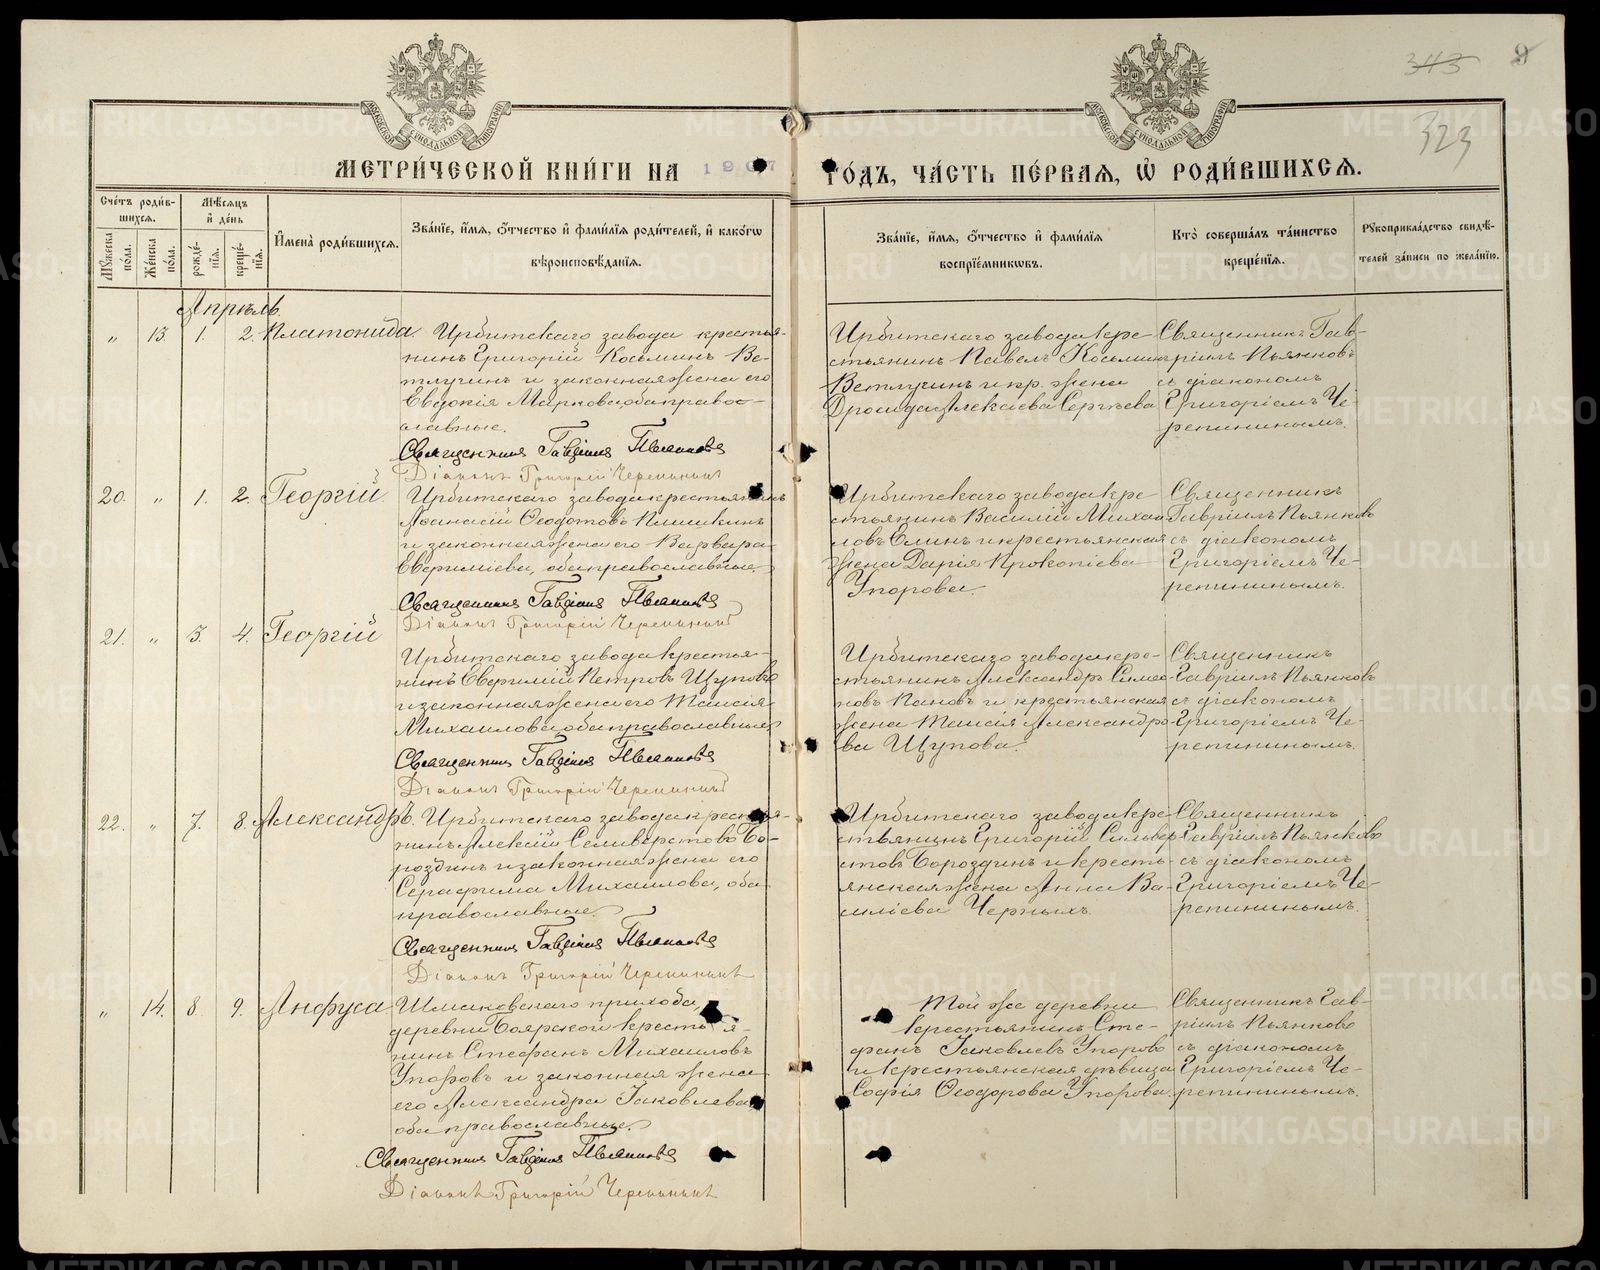 343 9
323
МОСКОВСКОЙ СѴНОДАЛЬНОЙ ТИПОГРАФІИ
МОСКОВСКОЙ СѴНОДАЛЬНОЙ ТИПОГРАФІИ
МЕТРИ́ЧЕСКОЙ КНИ́ГИ НА 1907 ГО́ДЪ, ЧА́СТЬ ПЕ́РВАѦ, Ѡ҆ РОДИ́ВШИХСѦ.
Сче́тъ роди́в-
шихсѧ.
Мꙋ́жеска по́ла.
Же́нска по́ла.
Мѣ́сѧцъ
и҆ де́нь
рожде́-
нїѧ.
креще́-
нїѧ.
И҆мена̀ роди́вшихсѧ.
Зва́нїе, и҆́мѧ, ѻ҆́тчество и҆ фами́лїѧ роди́телей, и҆ како́гѡ
вѣроисповѣ́данїѧ.
Зва́нїе, и҆́мѧ, ѻ҆́тчество и҆ фами́лїѧ
воспрїе́мникѡвъ.
Кто̀ соверша́лъ та́инство
креще́нїѧ.
Рꙋкоприкла́дство свидѣ́-
телей за́писи по жела́нїю.
Апрѣль.
„ 13. 1. 2. Платонида.
Ирбитскаго завода крестья-
нинъ Григорій Косьминъ Ве-
тлугинъ и законная жена его
Евдокія Маркова, оба правос-
лавные.
Священникъ Гавріилъ Пьянковъ
Діаконъ Григорій Черепининъ
Ирбитскаго завода кре-
стьянинъ Павелъ Косьминъ
Ветлугинъ и кр. жена
Дромида Алексіева Сергѣева
Священникъ Гав-
ріилъ Пьянковъ
съ діакономъ
Григоріемъ Че-
репининымъ.
20. „ 1. 2. Георгій.
Ирбитскаго завода крестьянинъ
Аѳанасій Ѳеодотовъ Пишкинъ
и законная жена его Варвара
Евѳиміева, оба православные.
Священникъ Гавріилъ Пьянковъ
Діаконъ Григорій Черепининъ
Ирбитскаго завода кре-
стьянинъ Василій Михаи-
ловъ Елинъ и крестьянская
жена Дарія Прокопіева
Упорова.
Священникъ
Гавріилъ Пьянковъ
съ діакономъ
Григоріемъ Че-
репининымъ.
21. „ 3. 4. Георгій
Ирбитскаго завода крестья-
нинъ Евѳимій Петровъ Щуповъ
и законная жена его Таисія
Михаилова, оба православные.
Священникъ Гавріилъ Пьянковъ
Діаконъ Григорій Черепининъ
Ирбитскаго завода кре-
стьянинъ Александръ Симео-
новъ Пановъ и крестьянская
жена Таисія Александро-
ва Щупова.
Священникъ
Гавріилъ Пьянковъ
съ діакономъ
Григоріемъ Че-
репининымъ.
22. „ 7. 8. Александръ.
Ирбитскаго завода крестья-
нинъ Алексій Селиверстовъ Бо-
роздинъ и законная жена его
Серафима Михаилова, оба
православные.
Священникъ Гавріилъ Пьянковъ
Діаконъ Григорій Черепининъ
Ирбитскаго завода кре-
стьянинъ Григорій Сильвер-
стовъ Бороздинъ и кресть-
янская жена Анна Ва-
силіева Черныхъ.
Священникъ
Гавріилъ Пьянковъ
съ діакономъ
Григоріемъ Че-
репининымъ.
„ 14. 8. 9. Анфуса
Шмаковскаго прихода,
деревни Боярской крестья-
нинъ Стефанъ Михаиловъ
Упоровъ и законная жена
его Александра Іаковлева,
оба православные.
Священникъ Гавріилъ Пьянковъ
Діаконъ Григорій Черепининъ
Той же деревни
крестьянинъ Сте-
фанъ Іаковлевъ Упоровъ
и крестьянская дѣвица
Софія Ѳеодорова Упорова.
Священникъ Гав-
ріилъ Пьянковъ
съ діакономъ
Григоріемъ Че-
репининымъ.
METRIKI.GASO-URAL.RU